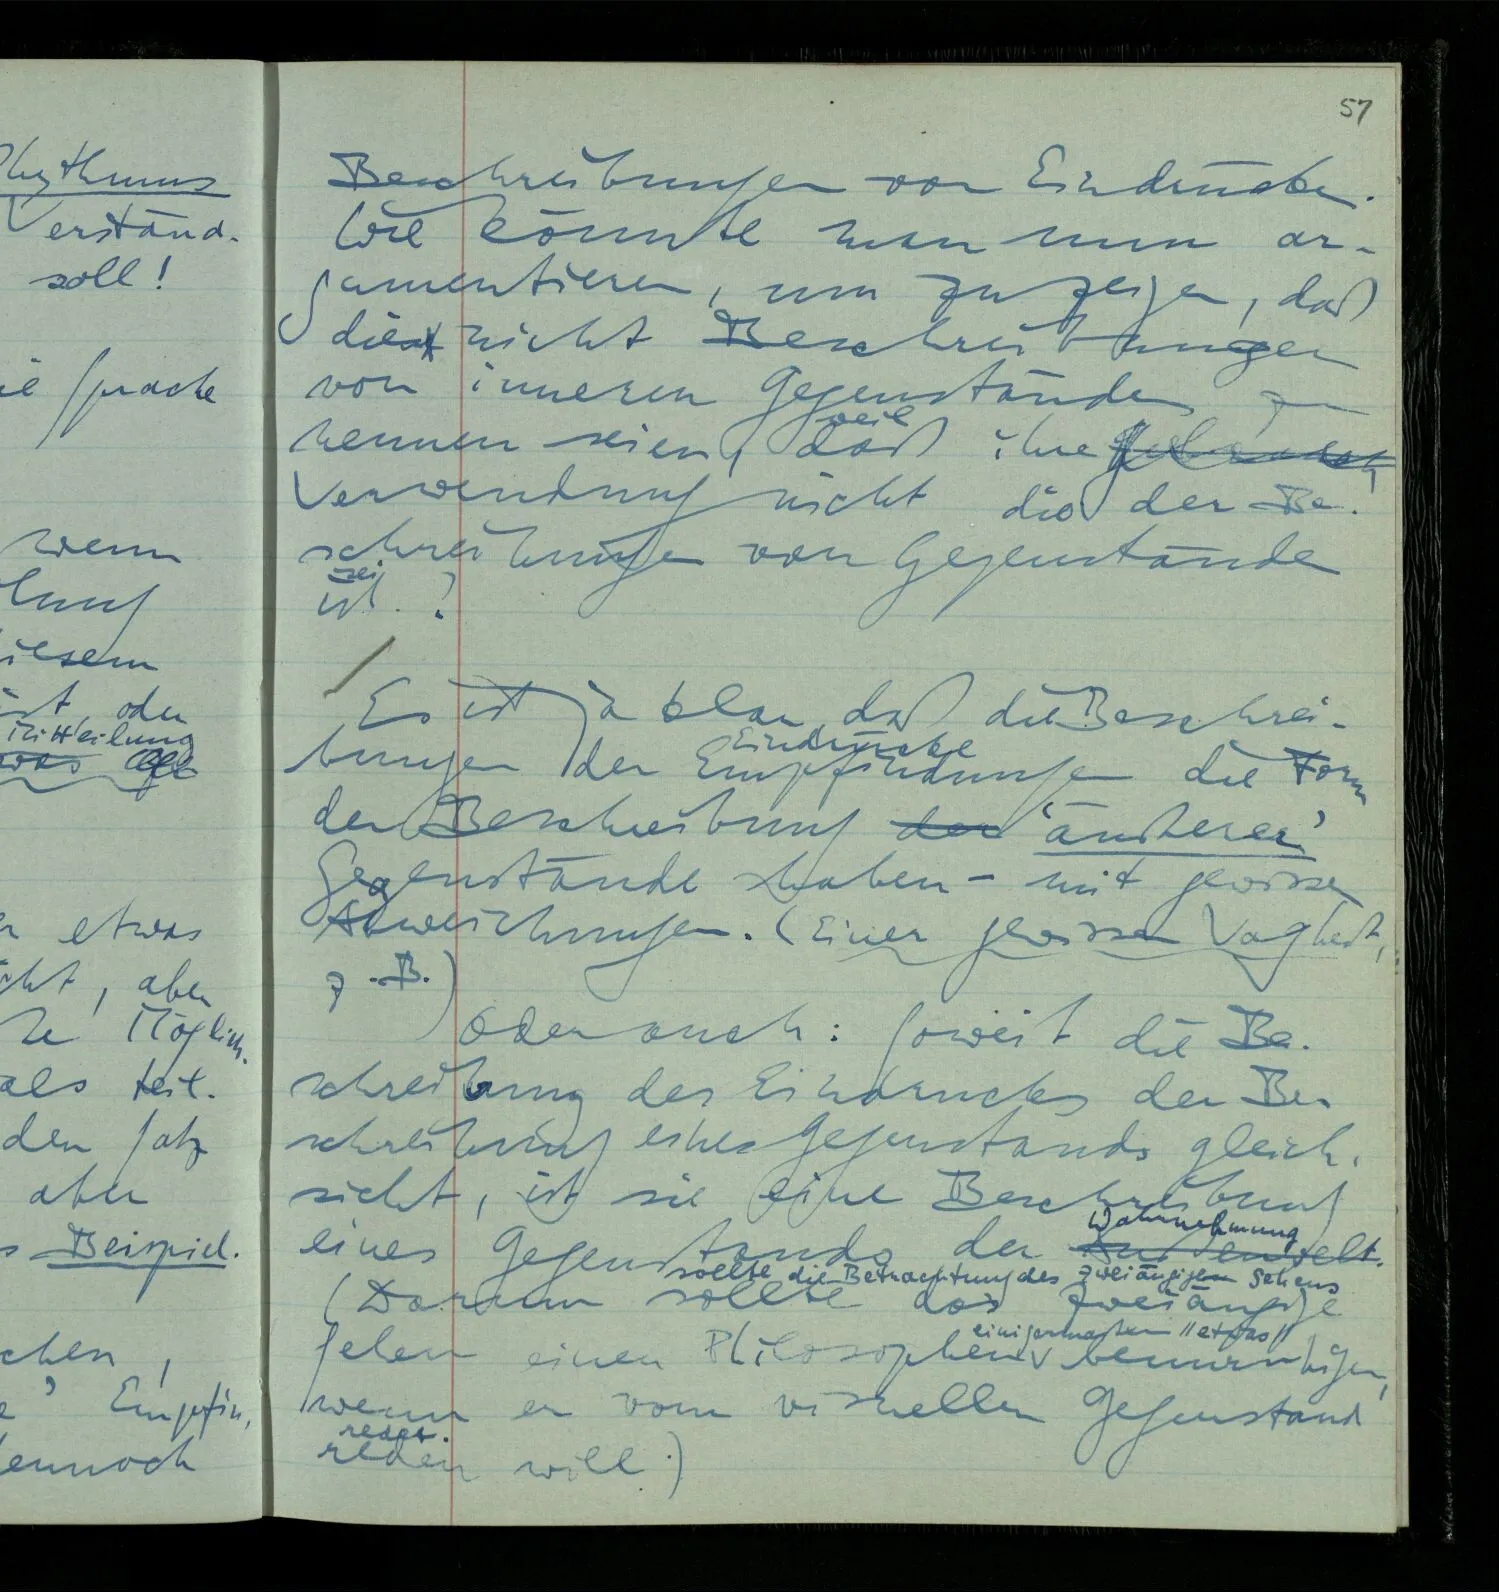 57
Rhythmus
Verständ-
soll!
Sprache
wenn
diesem
ist oder
Mitteilung
etwas
aber
Möglich-
als teil-
den Satz
aber
Beispiel.
Empfin-
dennoch
Beschreibungen von Eindrücken.
Wie könnte man nun ar-
gumentieren, um zu zeigen, daß
dies nicht Beschreibungen
von inneren Gegenständen zu
weil
nennen seien, daß ihre Gebrauch
Verwendung nicht die der Be-
schreibungen von Gegenständen
sei
ist.?
/ Es ist ja klar, daß die Beschrei-
Eindrücke
bungen der Empfindungen die Form
der Beschreibung der ‘äußerer’
Gegenstände haben – mit gewissen
Abweichungen. (Einer gewissen Vagheit,
z.B.)
Oder auch: Soweit die Be-
schreibung des Eindrucks der Be-
schreibung eines Gegenstands gleich-
sieht, ist sie eine Beschreibung
Wahrnehmung
eines Gegenstands der Außenwelt.
sollte die Betrachtung des zweiäugigen Sehens
(Darum sollte das zweiäugige
einigermaßen //etwas//
Sehen einen Philosophen beunruhigen,
wenn er vom visuellen Gegenstand
redet.
reden will.)